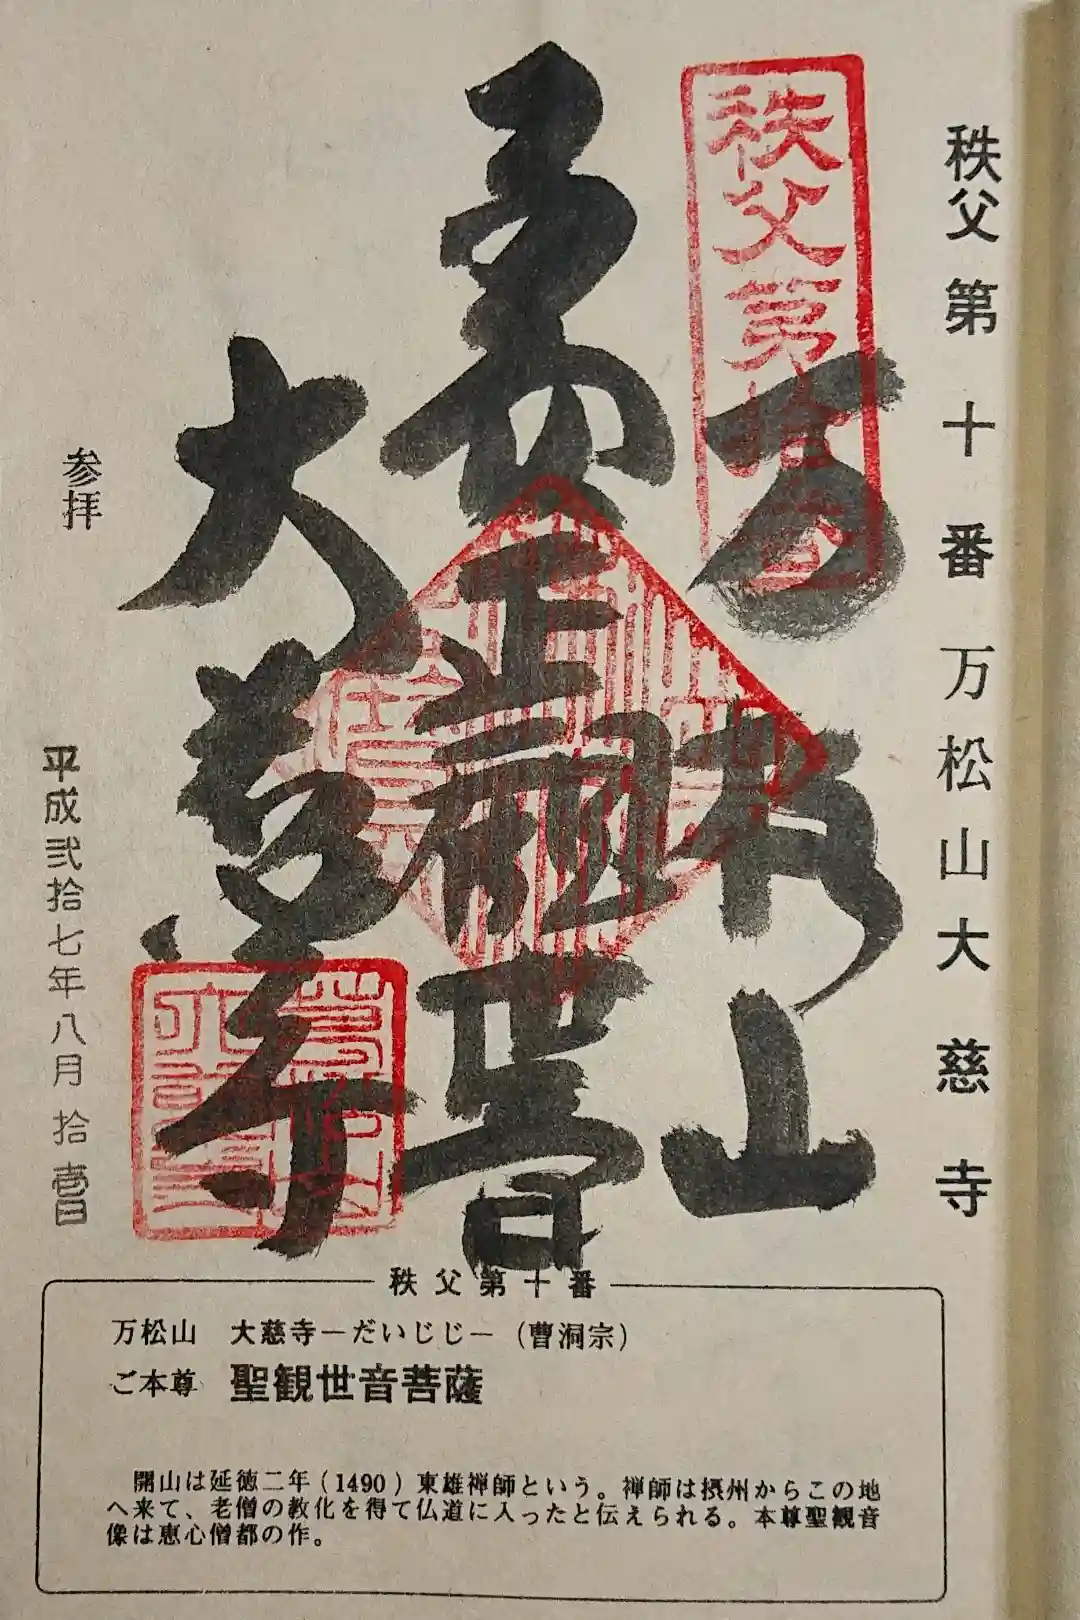 秩父第十番万松山大慈寺
秩父第拾番
万松山
奉拝
正観世音
大慈寺
参拝
平成弐拾七年八月拾壹日
秩父第十番
万松山 大慈寺－だいじじ－(曹洞宗)
ご本尊 聖観世音菩薩
開山は延徳二年(1490)東雄禅師という。禅師は摂州からこの地
へ来て、老僧の教化を得て仏道に入ったと伝えられる。本尊聖観音
像は恵心僧都の作。